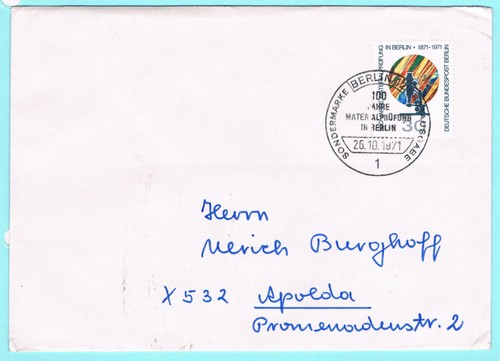 100 JAHRE MATERIALPRÜFUNG
IN BERLIN • 1871-1971
DEUTSCHE BUNDESPOST BERLIN
30
SONDERMARKE BERLIN 12 AUSGABE
100
JAHRE
MATERIALPRÜFUNG
IN BERLIN
26.10.1971
1
Herrn
Ulrich Burghoff
X 532 Apolda
Promenadenstr. 2